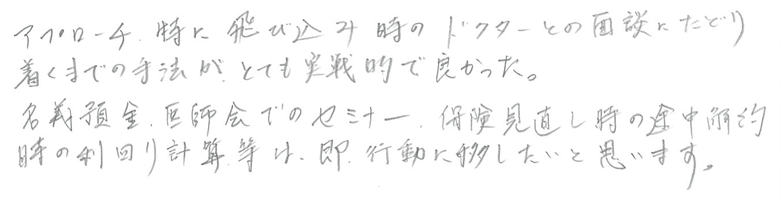 アプローチ、特に飛び込み時のドクターとの面談にたどり
着くまでの手法が、とても実戦的で良かった。
名義預金、医師会でのセミナー、保険見直し時の途中解約
時の利回り計算等は、即、行動に移したいと思います。